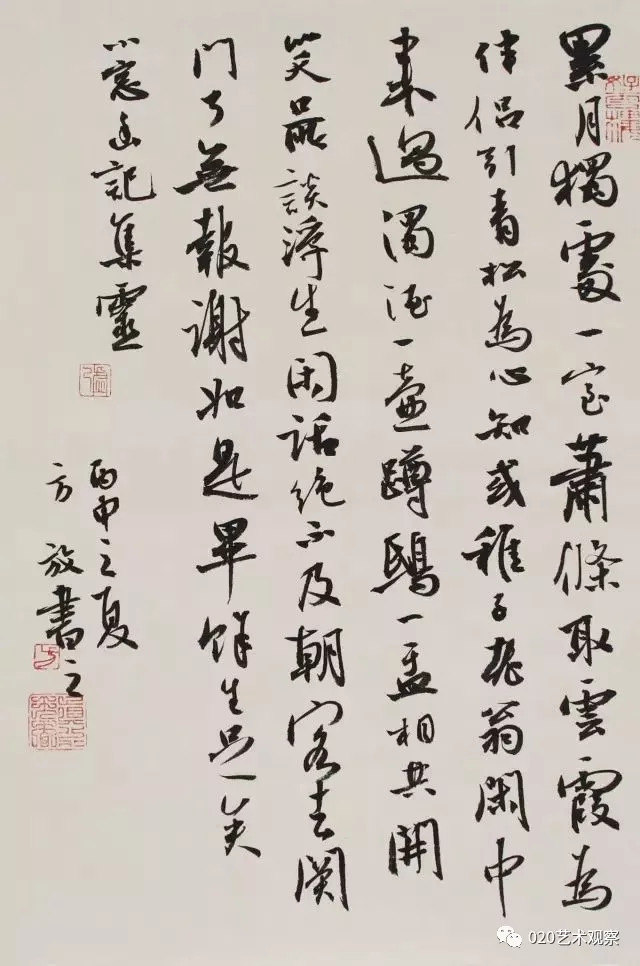 累月獨處一室蕭條取雲霞為
伴侶引青松為心知或稚子老翁閑中
來過濁酒一壺蹲鴟一盂相共開
笑口所談浮生閑話絕不及朝客去關
門了無報謝如是畢餘生足矣
小窗幽記集靈
丙申之夏
方放書之
020艺术观察